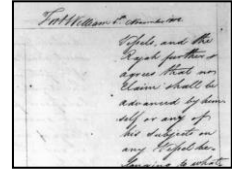 Fort William 6th November
Vessels, and the
Rajah further
agrees that no
Claim shall be
advanced by him
self or any of
his subjects on
any Vessel be
longing to what